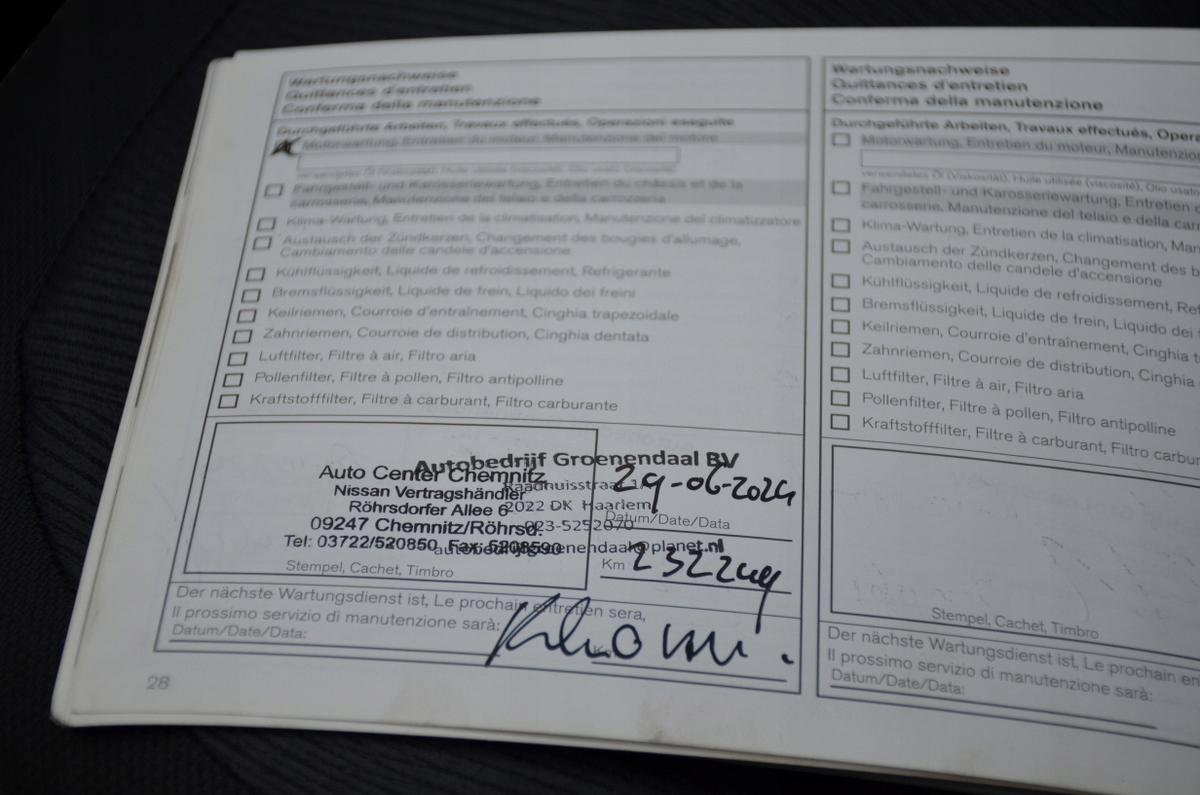 Wartungsnachweise
Quittances d'entretien
Conferma della manutenzione
Durchgeführte Arbeiten, Travaux effectués, Operazioni eseguite
Motorwartung, Entretien du moteur, Manutenzione del motore
verwendetes Öl (Viskosität), Huile utilisée (viscosité), Olio usato (viscosità)
Fahrgestell- und Karosseriewartung, Entretien du châssis et de la
carrosserie, Manutenzione del telaio e della carrozzeria
Klima-Wartung, Entretien de la climatisation, Manutenzione del climatizzatore
Austausch der Zündkerzen, Changement des bougies d'allumage,
Cambiamento delle candele d'accensione
Kühlflüssigkeit, Liquide de refroidissement, Refrigerante
Bremsflüssigkeit, Liquide de frein, Liquido dei freini
Keilriemen, Courroie d'entraînement, Cinghia trapezoidale
Zahnriemen, Courroie de distribution, Cinghia dentata
Luftfilter, Filtre à air, Filtro aria
Pollenfilter, Filtre à pollen, Filtro antipolline
Kraftstofffilter, Filtre à carburant, Filtro carburante
Autobedrijf Groenendaal BV
Raadhuisstraat
2022 DK Haarlem
023-5252070
autobedrijfgroenendaal@planet.nl
Auto Center Chemnitz
Nissan Vertragshändler
Röhrsdorfer Allee 6
09247 Chemnitz/Röhrsd.
Tel: 03722/520850, Fax: 5208590
Stempel, Cachet, Timbro
29-06-2024
Datum/Date/Data
Km
Der nächste Wartungsdienst ist, Le prochain entretien sera,
Il prossimo servizio di manutenzione sarà:
Datum/Date/Data:
28
Wartungsnachweise
Quittances d'entretien
Conferma della manutenzione
Durchgeführte Arbeiten, Travaux effectués, Opera
Motorwartung, Entretien du moteur, Manutenzio
verwendetes Öl (Viskosität), Huile utilisée (viscosité), Olio usato
Fahrgestell- und Karosseriewartung, Entretien
carrosserie, Manutenzione del telaio e della car
Klima-Wartung, Entretien de la climatisation, Man
Austausch der Zündkerzen, Changement des b
Cambiamento delle candele d'accensione
Kühlflüssigkeit, Liquide de refroidissement, Ref
Bremsflüssigkeit, Liquide de frein, Liquido dei
Keilriemen, Courroie d'entraînement, Cinghia t
Zahnriemen, Courroie de distribution, Cinghia
Luftfilter, Filtre à air, Filtro aria
Pollenfilter, Filtre à pollen, Filtro antipolline
Kraftstofffilter, Filtre à carburant, Filtro carbur
Stempel, Cachet, Timbro
Der nächste Wartungsdienst ist, Le prochain en
Il prossimo servizio di manutenzione sarà:
Datum/Date/Data: